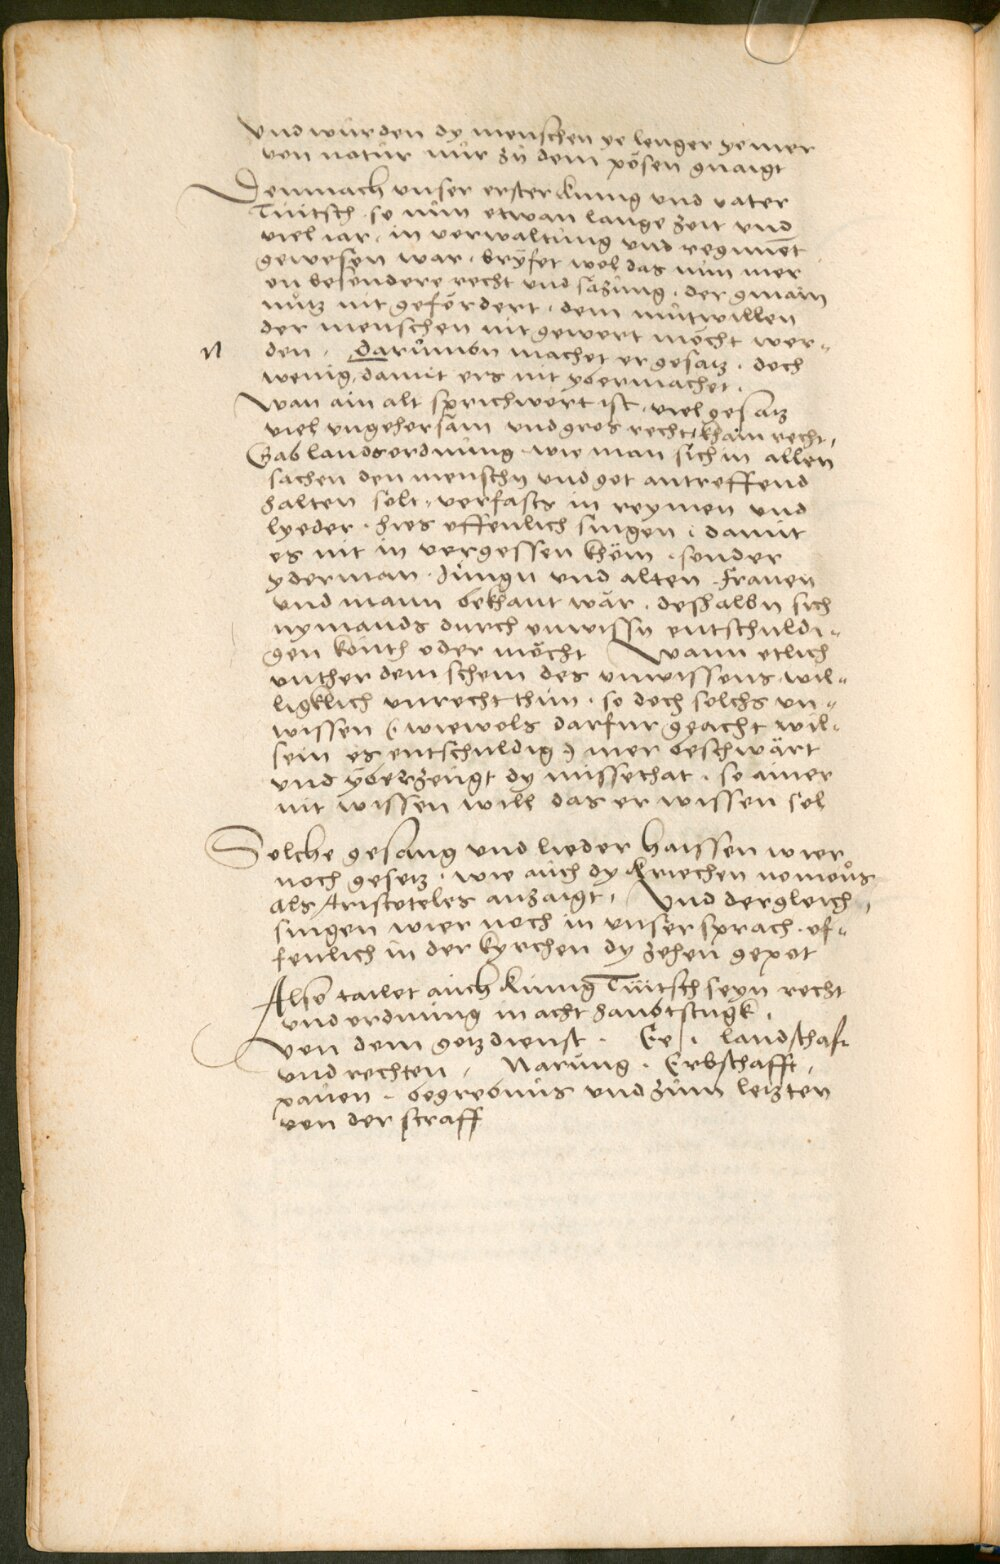 vnd wurden dy menschen ye lenger yemer
von natur nur zu dem pösen gnaigt
Demnach vnser erster kunig vnd vater
Tüitsch so nun etwan lange zeit vnd
viel iar, in verwaltung vnd regimēt
gewesen war, bryfet wol das nun mer
on besondere recht vnd sazung, der gmain
nutz nit gefördert, dem mutwillen
der menschen nit gewert möcht wer=
den, Darumbn machet er gesatz, doch
wenig, damit ers nit ybermachet,
Wan ain alt sprichwort ist, viel gesatz
viel vngehorsam vnd gros recht, khain recht,
Gab landsordnung wie man sich in allen
sachen den menschn vnd got antreffend
halten solt, verfasts in reymen vnd
lyeder, hies offenlich singen, damit
es nit in vergessen khöm, sonder
yderman, Jungn vnd alten, frauen
vnd mann bekhant wär, deshalbn sich
nymands durch vnwissn entschuldi=
gen könth oder möcht Wann etlich
vnther dem schein des vnwissens, wil=
ligklich vnrecht thun, so doch solchs vn=
wissen (wiewols darfur geacht wil
sein es entschuldig) mer beschwärt
vnd yberzeugt dy missethat, so ainer
nit wissen will das er wissen sol
Solche gesang vnd lieder haissen wier
noch gesetz, wie auch dy kriechen nomous
als Aristoteles anzaigt, Vnd dergleich,
singen wier noch in vnser sprach of=
fenlich in der kyrchen dy zehen gepot
Also tailet auch kunig Tüitsch seyn recht
vnd ordnung in acht haubtstugk,
Von dem gotzdienst, Ee, landschaft
vnd rechten, Narung, Erbschafft,
pauen, begrebnus vnd zum letzten
von der straff